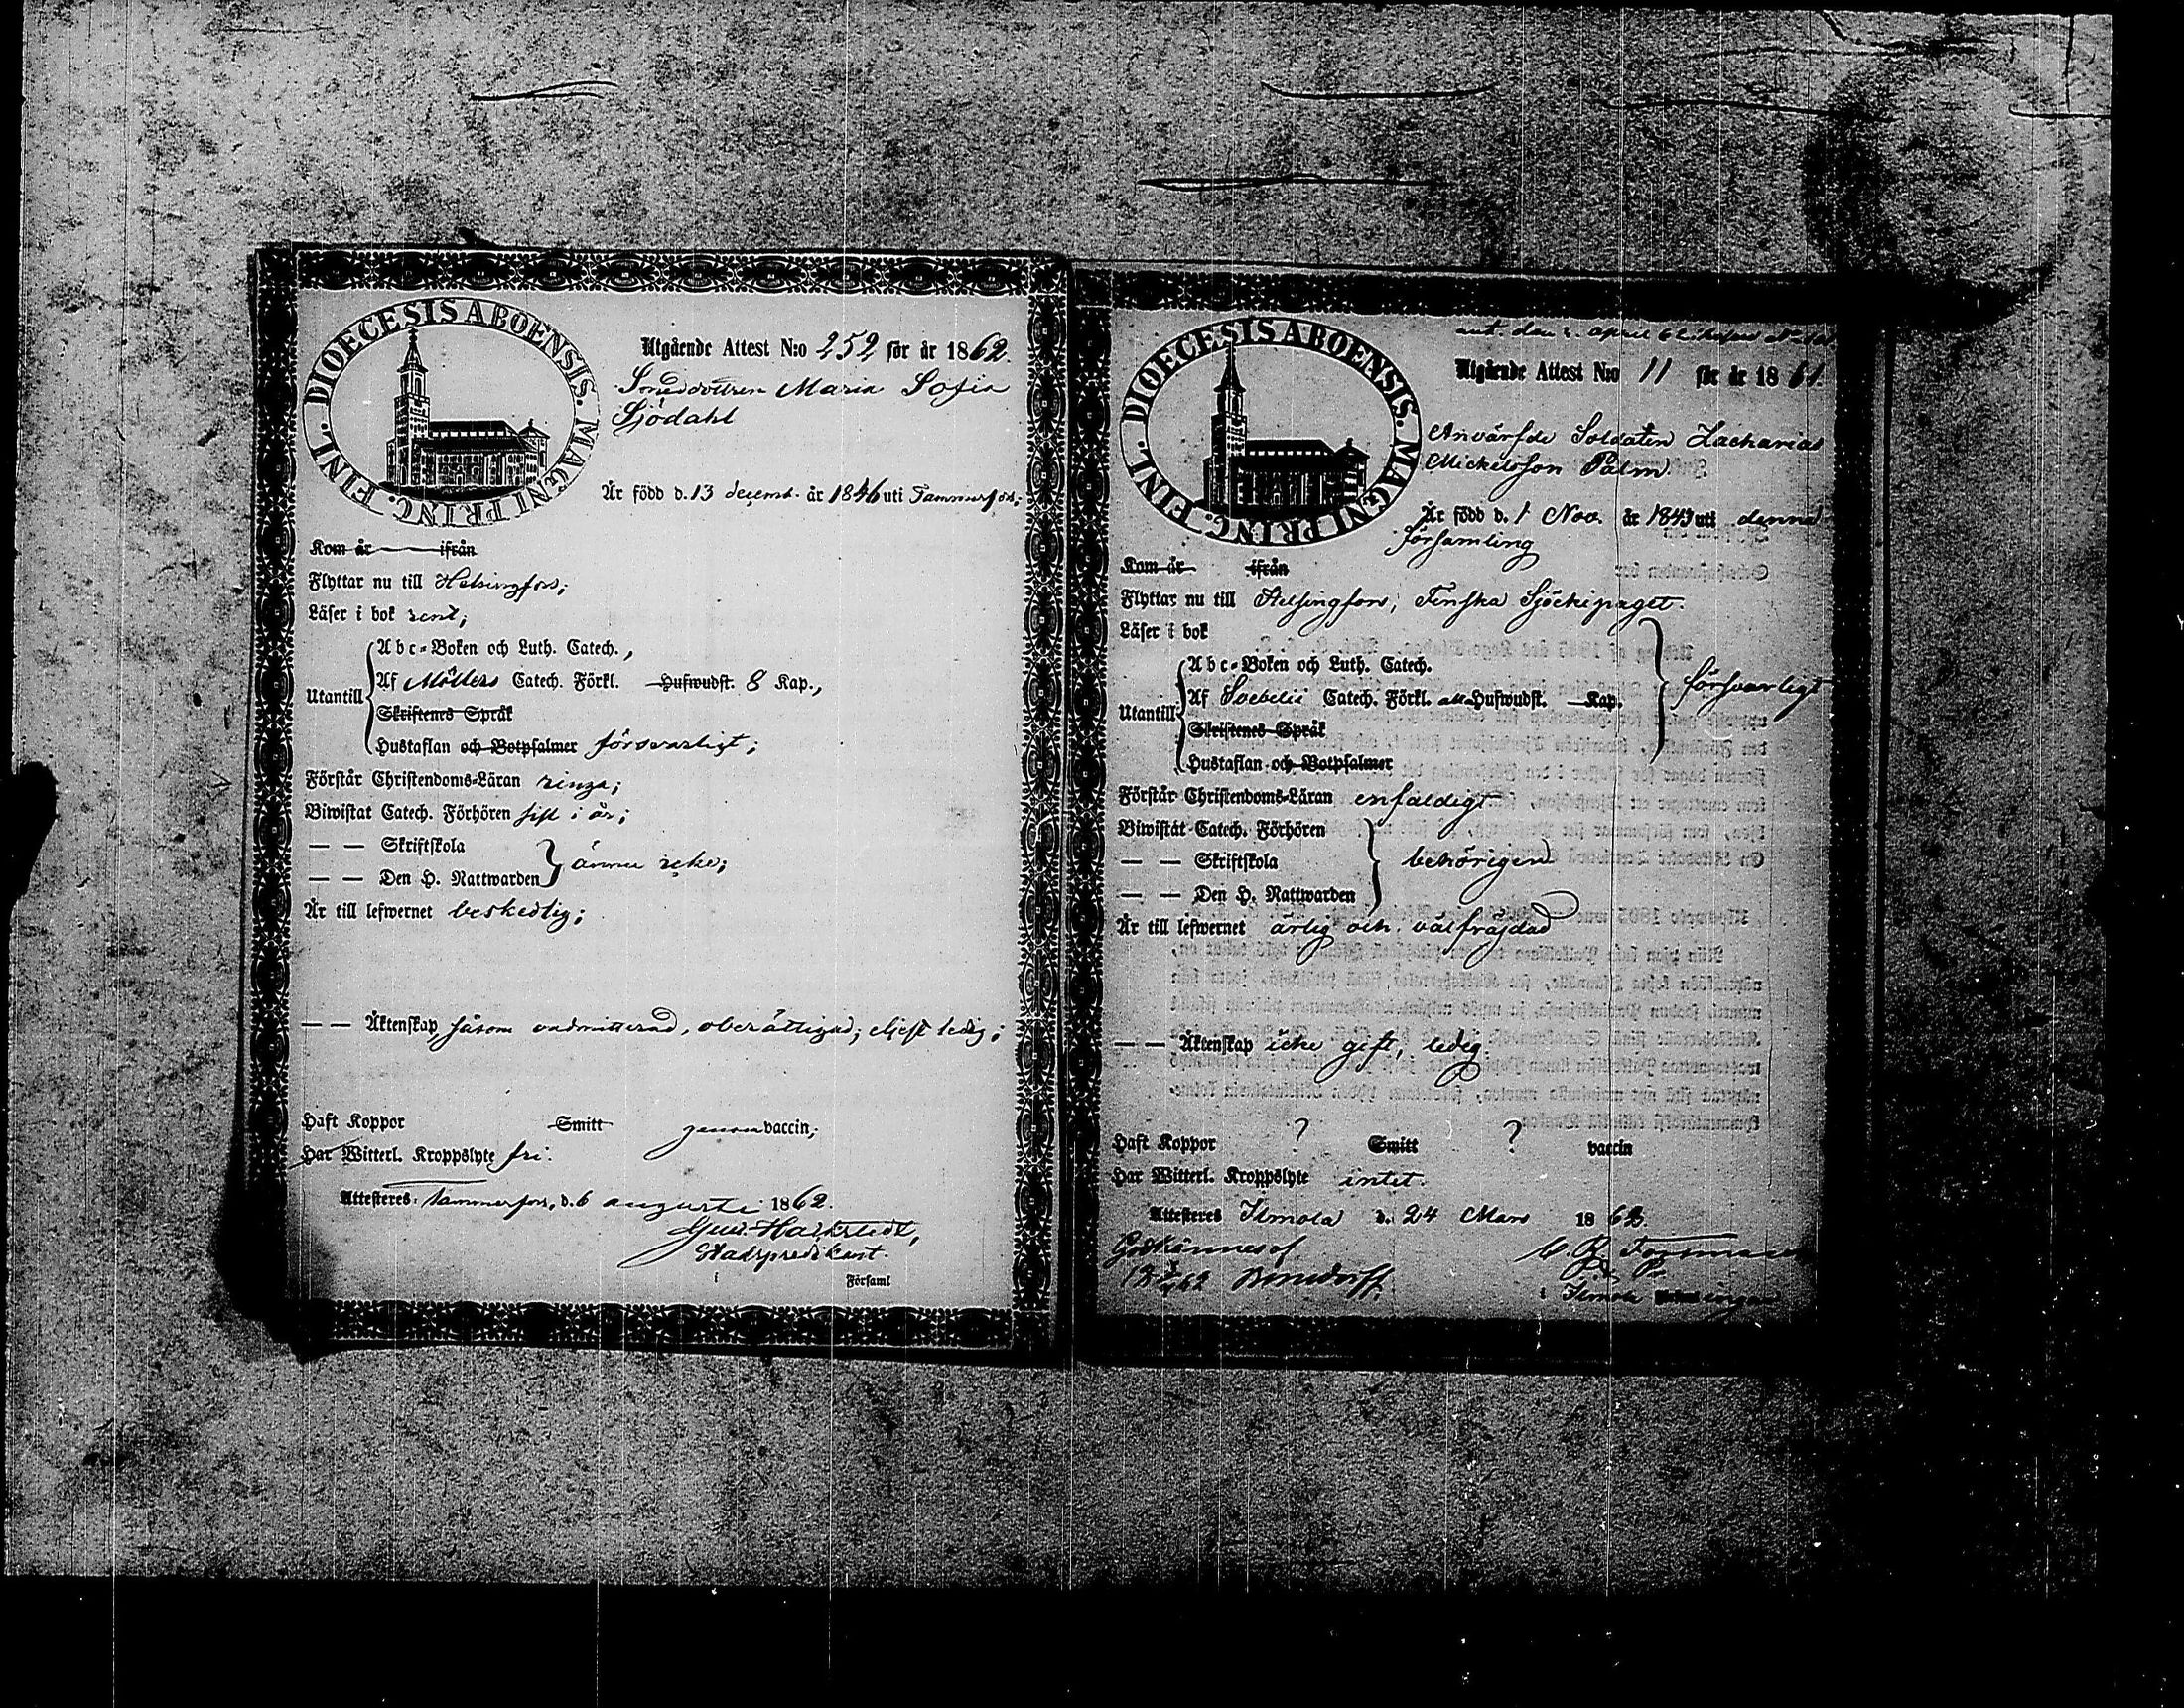 DIOECESIS ABOENSIS. MAGNI PRINC. FINL.
Utgående Attest N:o 252 för år 1862.
Smeddottren Maria Sofia
Sjödahl
Är född d. 13 decemb. år 1846 uti Tammerfors;
Kom år ifrån
Flyttar nu till Helsingfors;
Läser i bok rent;
Utantill
Abc-Boken och Luth. Catech.,
Af Möllers Catech. Förkl. Hufwudst. 8 Kap.,
Skriftenes Språk
Hustaflan och Botpsalmer försvarligt;
Förstår Christendoms-Läran ringa;
Biwistat Catech. Förhören sist i år;
— — Skriftskola
— — Den H. Nattwarden
ännu icke;
Är till lefwernet beskedlig;
— — Äktenskap såsom oadmitterad, oberättigad; eljest ledig;
Haft Koppor Smitt genom vaccin;
Har Witterl. Kroppslyte fri.
Attesteras: Tammerfors, d. 6 augusti 1862.
Stadspredikant.
i Församl
DIOECESIS ABOENSIS. MAGNI PRINC. FINL.
ant. den 2. april 62
Utgående Attest N:o 11 för år 1861.
Anvärfde Soldaten Zacharias
Mickelsson Palm
Är född d. 1 Nov. år 1843 uti denna
församling
Kom år ifrån
Flyttar nu till Helsingfors, Finska Sjöekipaget.
Läser i bok
Utantill
Abc-Boken och Luth. Catech.
Af Svebelii Catech. Förkl. alla Hufwudst. Kap.
Skriftenes Språk
Hustaflan och Botpsalmer
försvarligt
Förstår Christendoms-Läran enfaldigt
Biwistat Catech. Förhören
— — Skriftskola
— — Den H. Nattwarden
behörigen
Är till lefwernet ärlig och välfräjdad
— — Äktenskap icke gift, ledig.
Haft Koppor ? Smitt ? vaccin
Har Witterl. Kroppslyte intet.
Attesteras Ilmola d. 24 Mars 1862.
Godkännes af
Bonsdorff.
i Ilmola